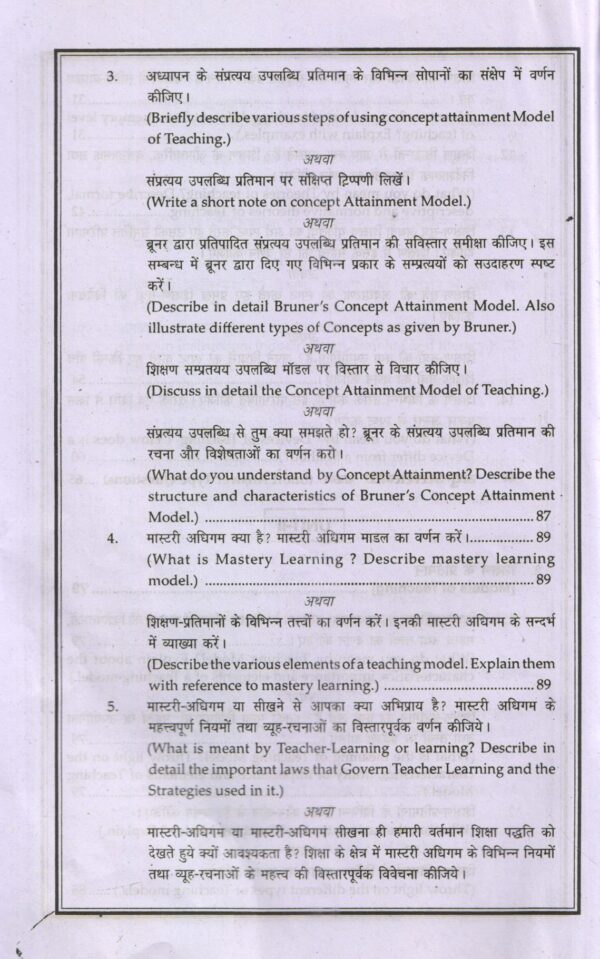 3. अध्यापन के संप्रत्यय उपलब्धि प्रतिमान के विभिन्न सोपानों का संक्षेप में वर्णन
कीजिए।
(Briefly describe various steps of using concept attainment Model
of Teaching.)
अथवा
संप्रत्यय उपलब्धि प्रतिमान पर संक्षिप्त टिप्पणी लिखें।
(Write a short note on concept Attainment Model.)
अथवा
ब्रूनर द्वारा प्रतिपादित संप्रत्यय उपलब्धि प्रतिमान की सविस्तार समीक्षा कीजिए। इस
सम्बन्ध में ब्रूनर द्वारा दिए गए विभिन्न प्रकार के सम्प्रत्ययों को सउदाहरण स्पष्ट
करें।
(Describe in detail Bruner's Concept Attainment Model. Also
illustrate different types of Concepts as given by Bruner.)
अथवा
शिक्षण सम्प्रतयय उपलब्धि मॉडल पर विस्तार से विचार कीजिए।
(Discuss in detail the Concept Attainment Model of Teaching.)
अथवा
संप्रत्यय उपलब्धि से तुम क्या समझते हो? ब्रूनर के संप्रत्यय उपलब्धि प्रतिमान की
रचना और विशेषताओं का वर्णन करो।
(What do you understand by Concept Attainment? Describe the
structure and characteristics of Bruner's Concept Attainment
Model.) ........................................................................ 87
4. मास्टरी अधिगम क्या है? मास्टरी अधिगम माडल का वर्णन करें।................. 89
(What is Mastery Learning ? Describe mastery learning
model.) ........................................................................ 89
अथवा
शिक्षण-प्रतिमानों के विभिन्न तत्त्वों का वर्णन करें। इनकी मास्टरी अधिगम के सन्दर्भ
में व्याख्या करें।
(Describe the various elements of a teaching model. Explain them
with reference to mastery learning.) .................................. 89
5. मास्टरी-अधिगम या सीखने से आपका क्या अभिप्राय है? मास्टरी अधिगम के
महत्त्वपूर्ण नियमों तथा व्यूह-रचनाओं का विस्तारपूर्वक वर्णन कीजिये।
(What is meant by Teacher-Learning or learning? Describe in
detail the important laws that Govern Teacher Learning and the
Strategies used in it.)
अथवा
मास्टरी-अधिगम या मास्टरी-अधिगम सीखना ही हमारी वर्तमान शिक्षा पद्धति को
देखते हुये क्यों आवश्यकता है? शिक्षा के क्षेत्र में मास्टरी अधिगम के विभिन्न नियमों
तथा व्यूह-रचनाओं के महत्त्व की विस्तारपूर्वक विवेचना कीजिये।